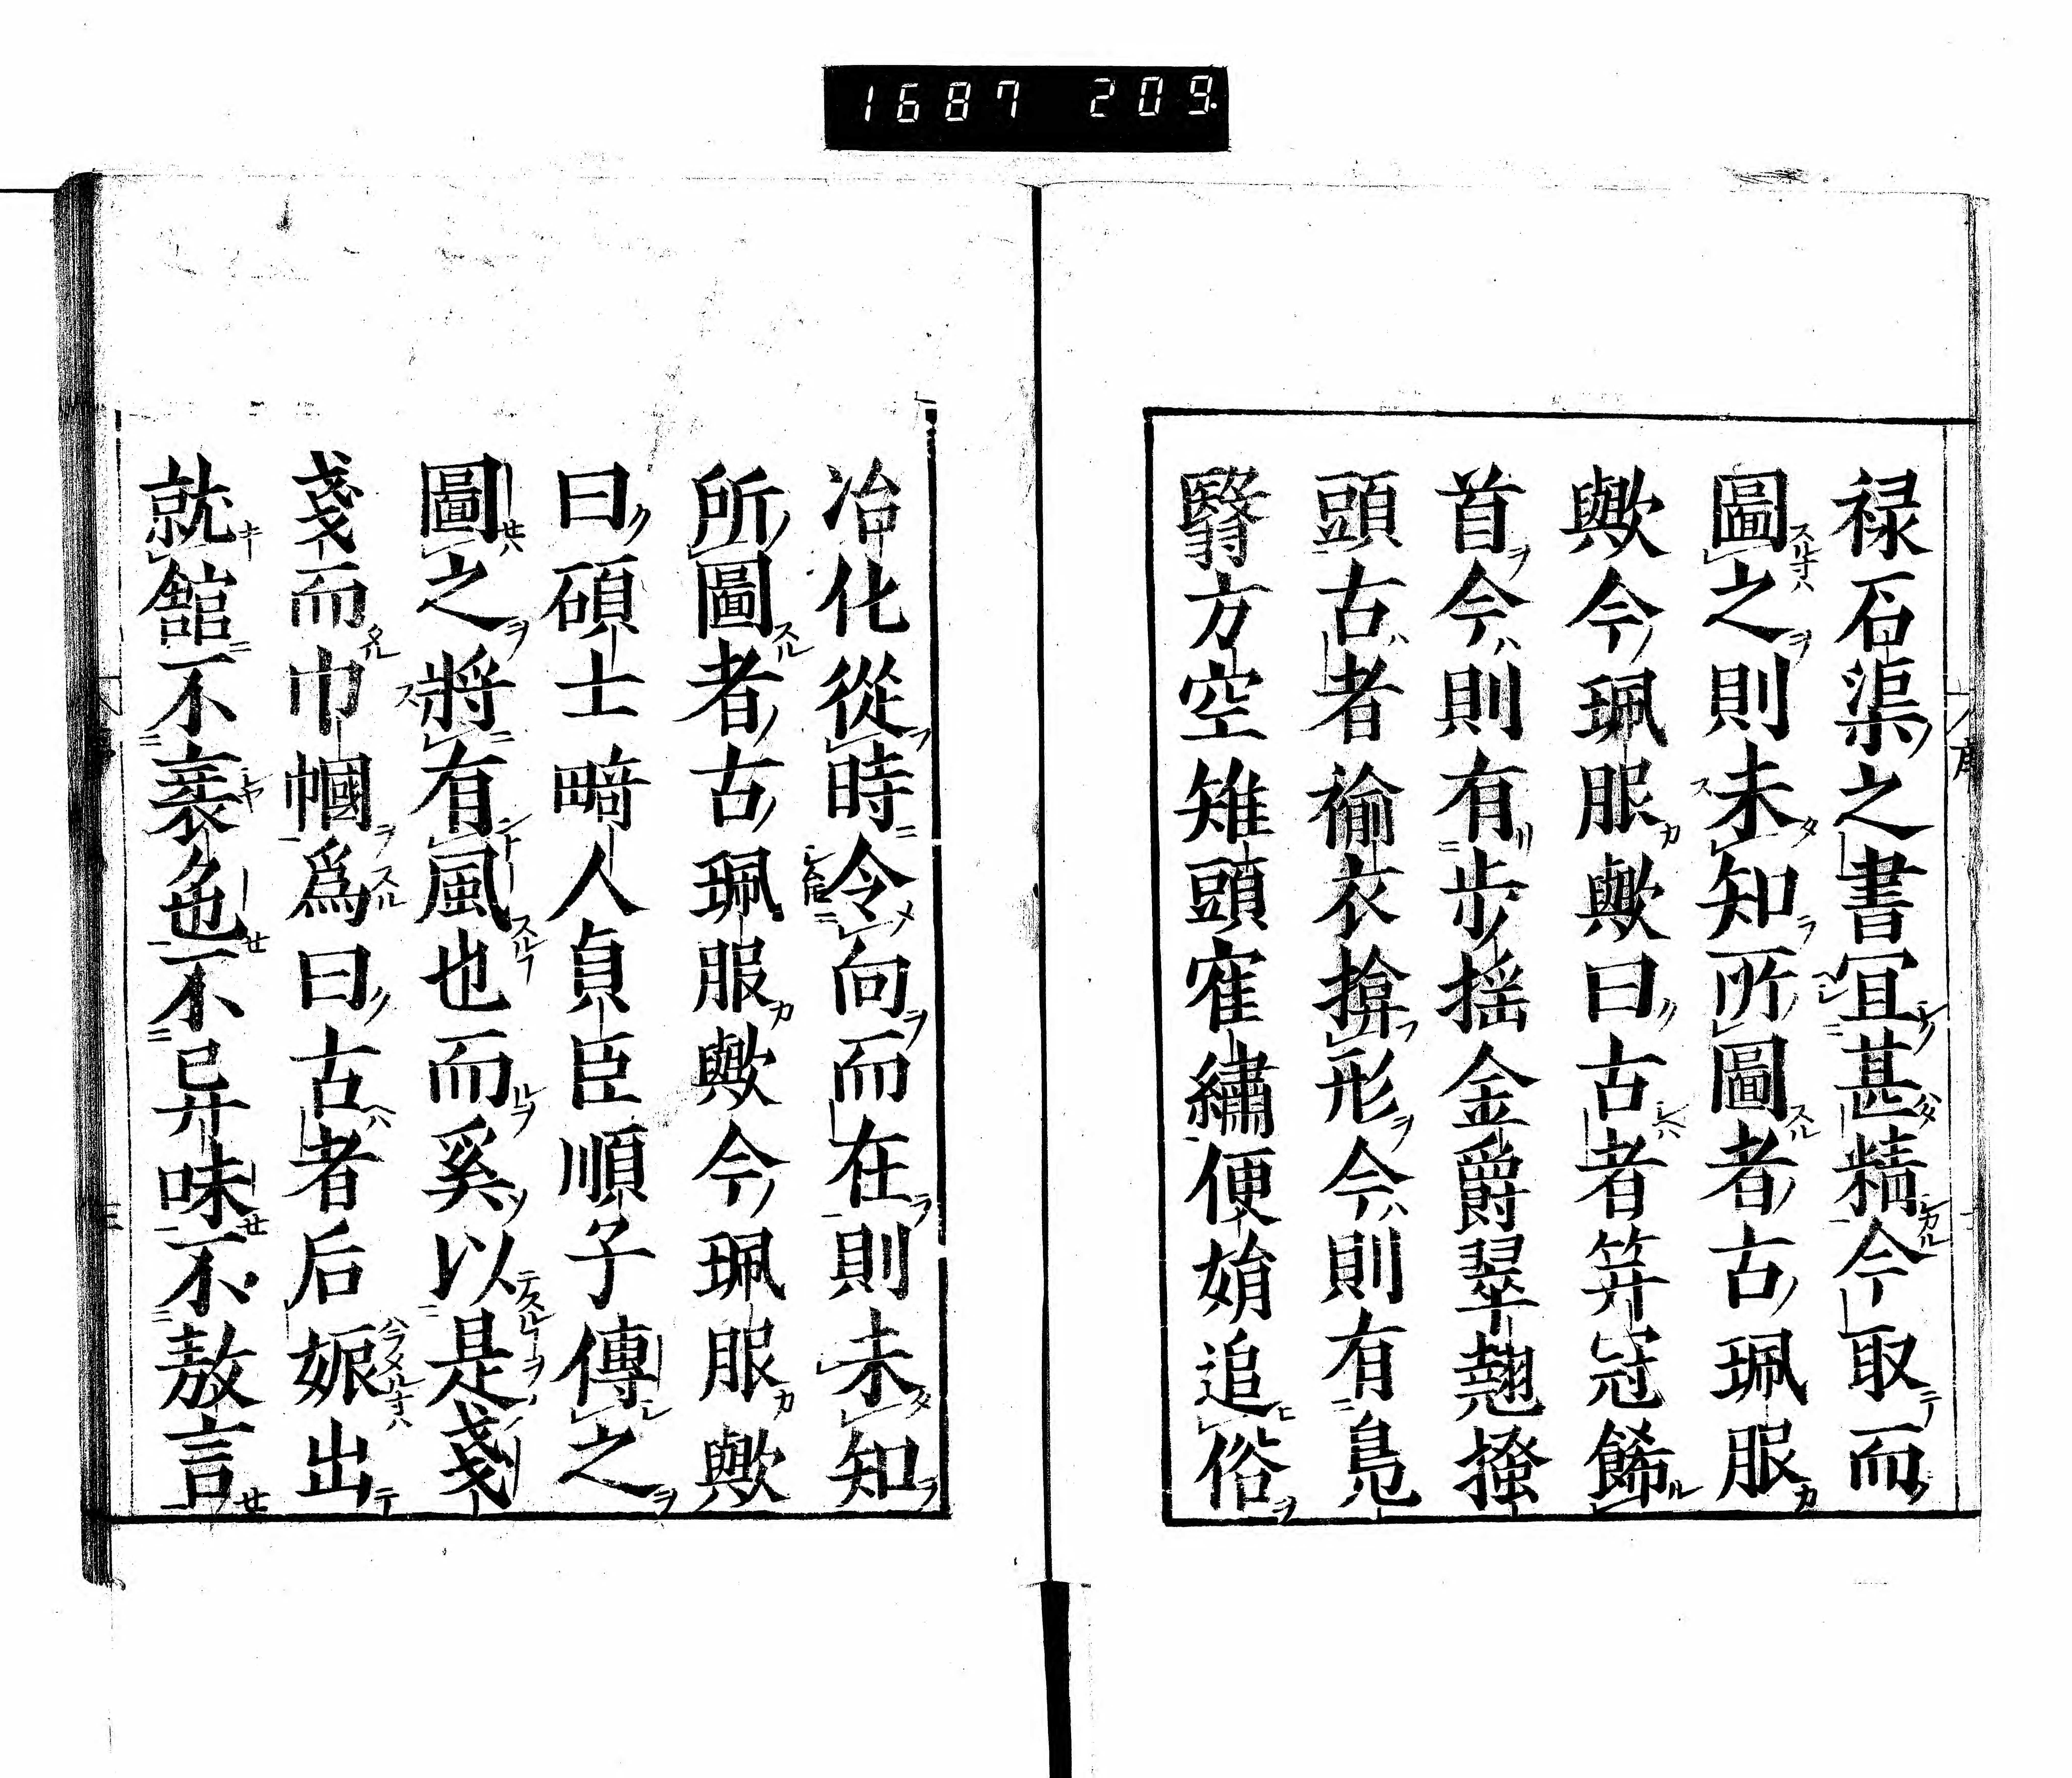 1687 209
禄石渠之書宜甚精今取而
圖之則未知所圖者古珮服
歟今珮服歟曰古者笄冠餙
首今則有步揺金爵翠翹搔
頭古者褕衣揜形今則有鳬
翳方空雉頭寉繡便娟追俗
冶化從時令向而在則未知
所圖者古珮服歟今珮服歟
曰碩士畸人貞臣順子傳之
圖之將有風也而奚以是戔
戔而巾幗爲曰古者后娠出
就舘不衺色不异味不敖言